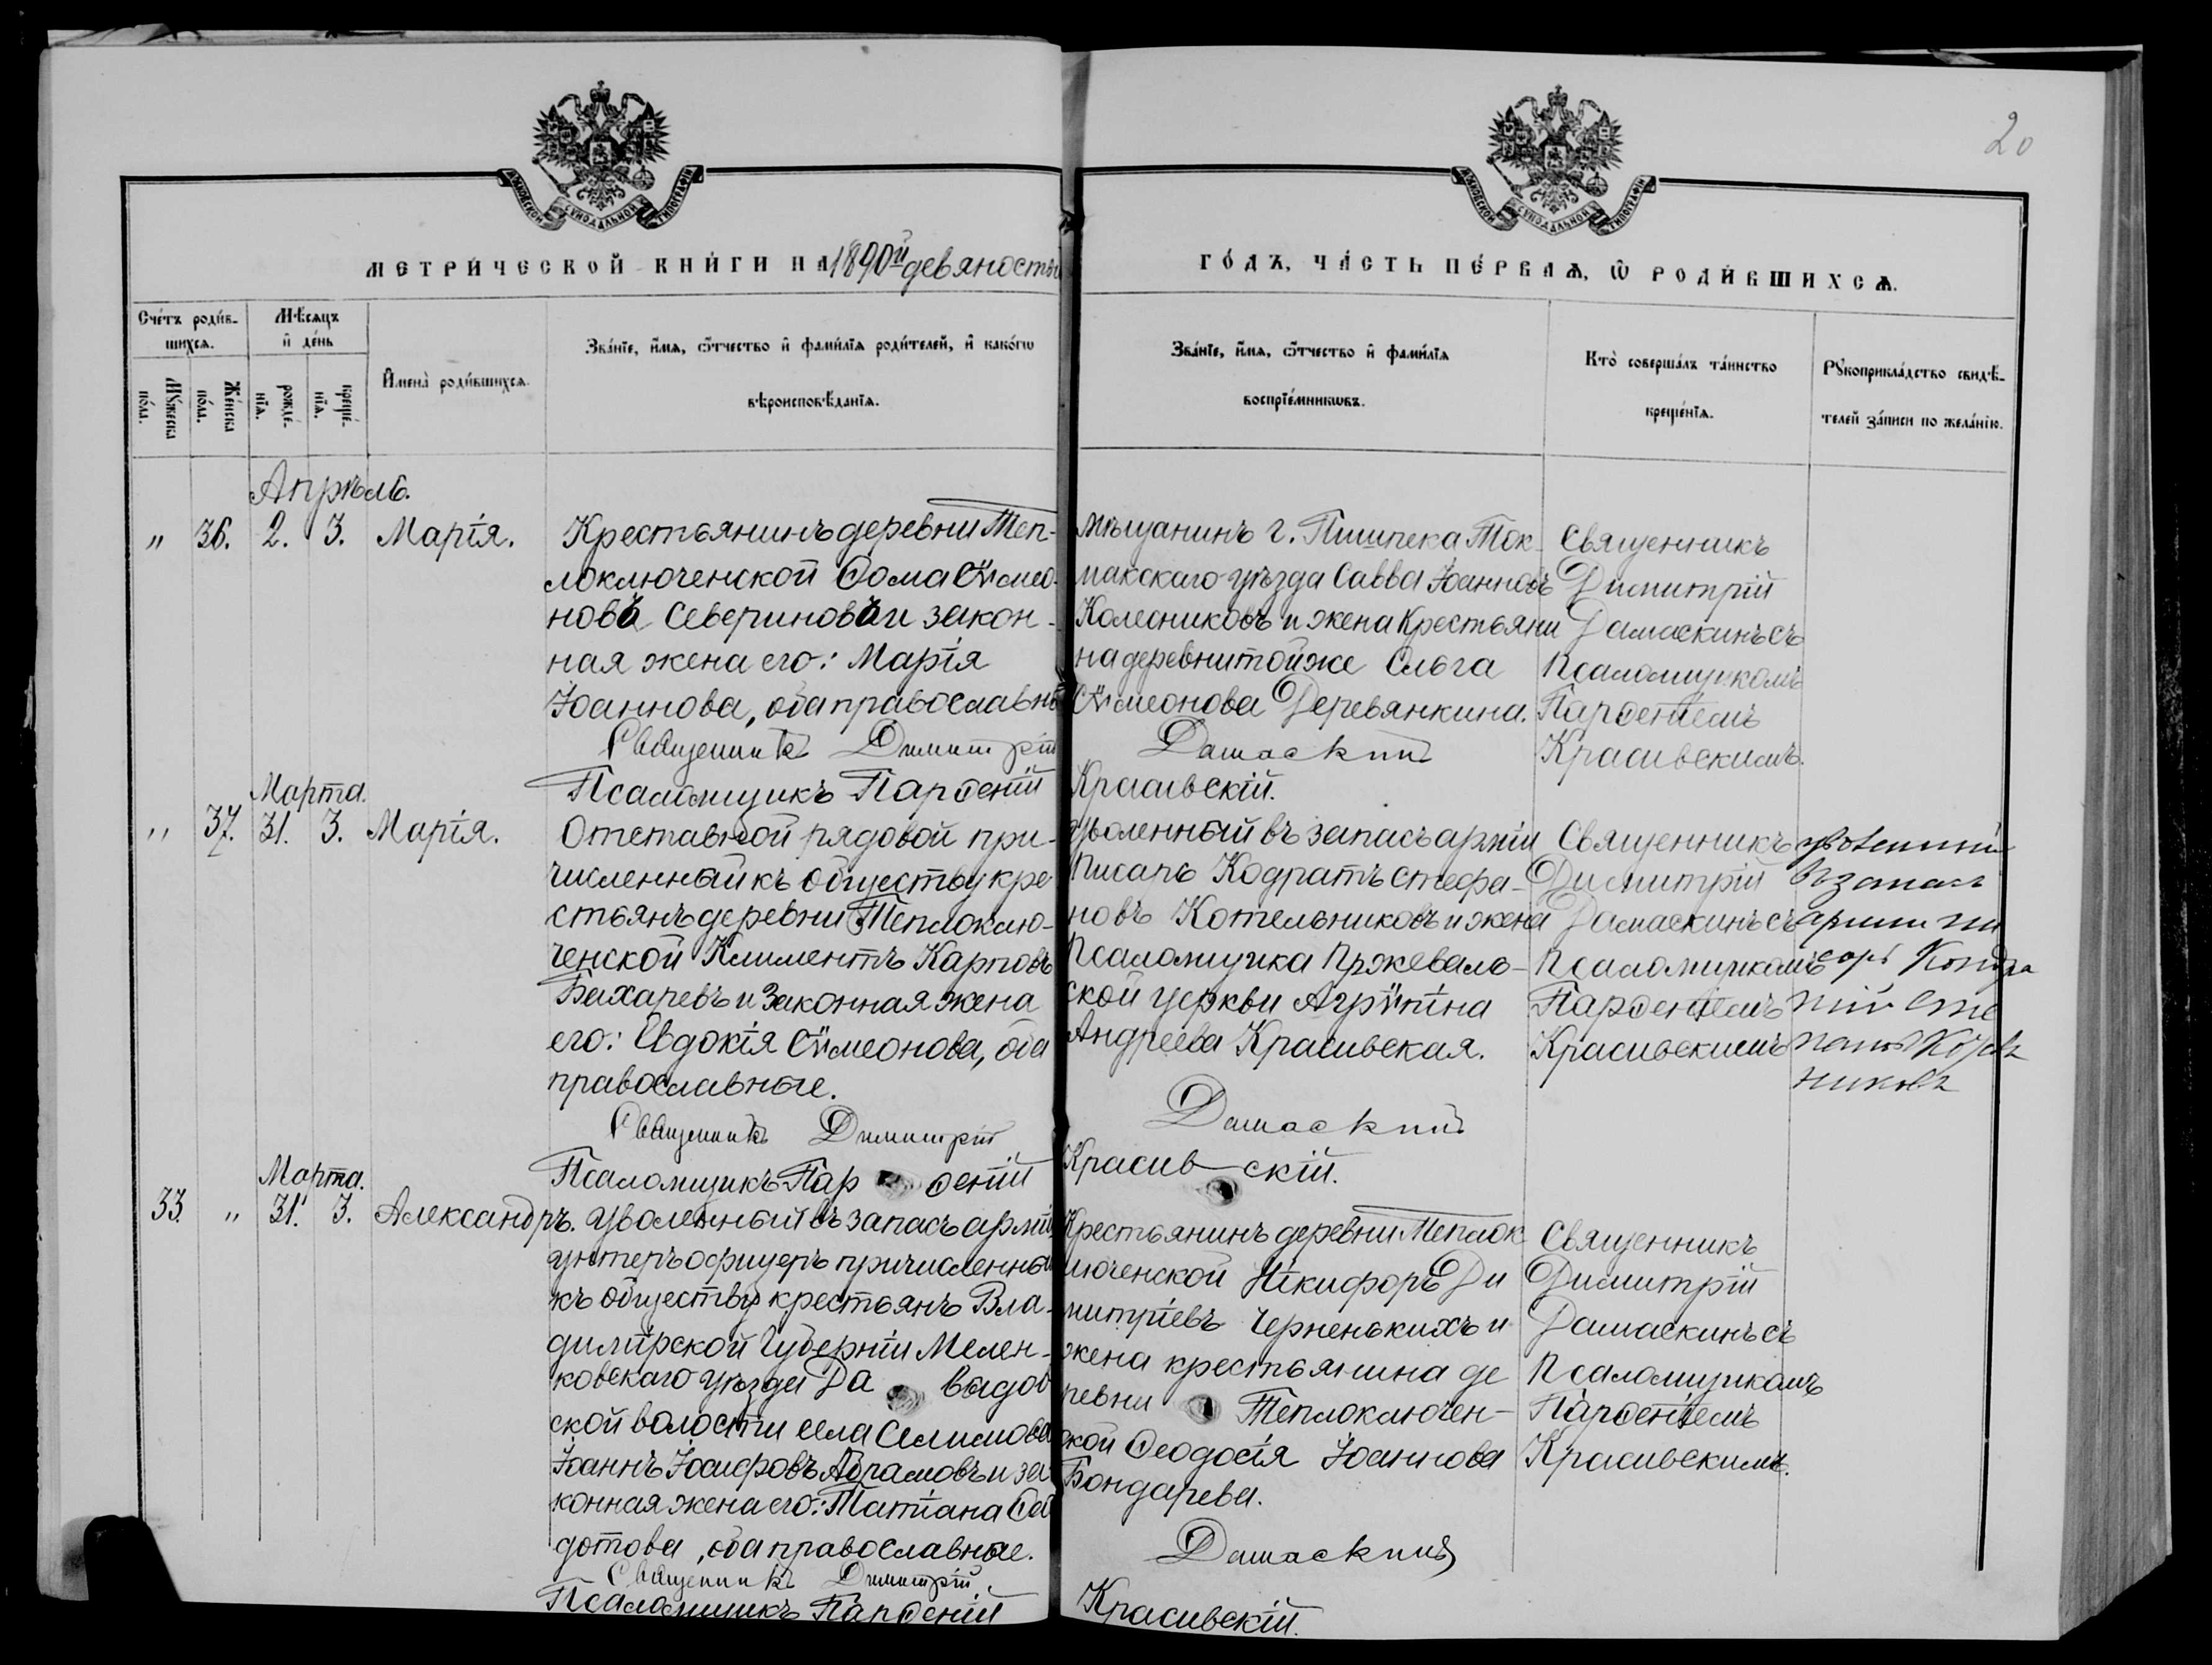 20
МОСКОВСКОЙ СѴНОДАЛЬНОЙ ТИПОГРАФІИ
МОСКОВСКОЙ СѴНОДАЛЬНОЙ ТИПОГРАФІИ
МЕТРИ́ЧЕСКОЙ КНИ́ГИ НА 1890й девяносты
ГО́ДЪ, ЧА́СТЬ ПЕ́РВАѦ, Ѡ РОДИ́ВШИХСѦ.
Сче́тъ роди́в-
шихсѧ.
Мꙋ́жеска
по́ла.
Же́нска
по́ла.
Мѣ́сѧцъ
и҆ де́нь
рожде́-
нїѧ.
креще́-
нїѧ.
И҆мена̀ роди́вшихсѧ.
Зва́нїе, и҆́мѧ, ѻ҆́тчество и҆ фами́лїѧ роди́телей, и҆ како́гѡ
вѣроисповѣ́данїѧ.
Зва́нїе, и҆́мѧ, ѻ҆́тчество и҆ фами́лїѧ
воспрїе́мникѡвъ.
Кто̀ соверша́лъ та́инство
креще́нїѧ.
Рꙋкоприкла́дство свидѣ́-
телей за́писи по жела́нїю.
Апрѣль.
" 36. 2. 3. Марія.
Крестьянинъ деревни Теп-
лоключенской Ѳома Сѵмео-
новъ Севериновъ и закон-
ная жена его: Марія
Іоаннова, оба православны
Священникъ Димитрій
Псаломщикъ Парѳеній
Мѣщанинъ г. Пишпека Ток-
макскаго уѣзда Савва Іоанновъ
Колесниковъ и жена Крестьяни
на деревни той же Ольга
Сѵмеонова Деревянкина.
Дамаскинъ
Красивскій.
Священникъ
Димитрій
Дамаскинъ съ
Псаломщикомъ
Парѳеніемъ
Красивскимъ.
Марта.
" 37. 31. 3. Марія.
Отставной рядовой при-
численный къ обществу кре
стьянъ деревни Теплоклю-
ченской Климентъ Карповъ
Бахаревъ и законная жена
его: Евдокія Сѵмеонова, оба
православные.
Священникъ Димитрій
Псаломщикъ Парѳеній
уволенный въ запасъ арміи
Писарь Кодратъ Стефа-
новъ Котельниковъ и жена
Псаломщика Пржеваль-
ской церкви Агрѵпіна
Андреева Красивская.
Дамаскинъ
Красивскій.
Священникъ
Димитрій
Дамаскинъ съ
Псаломщикомъ
Парѳеніемъ
Красивскимъ
въ запас
армии пи
сарь Кондра
никовъ
Марта.
33. " 31. 3. Александръ.
уволенный въ запасъ арміи
унтеръ офицеръ причисленный
къ обществу крестьянъ Вла-
димірской Губерніи Мелен-
ковскаго уѣзда Давыдов
ской волости села Селимова
Іоаннъ Іосифовъ Абрамовъ и за
конная жена его: Татіана Ѳео
дотова, оба православные.
Священникъ Димитрій
Псаломщикъ Парѳеній
Крестьянинъ деревни Теплок
люченской Никифоръ Ди
митріевъ Черненькихъ и
жена крестьянина де
ревни Теплоключен-
ской Ѳеодосія Іоаннова
Бондарева.
Дамаскинъ
Красивскій.
Священникъ
Димитрій
Дамаскинъ съ
Псаломщикомъ
Парѳеніемъ
Красивскимъ.